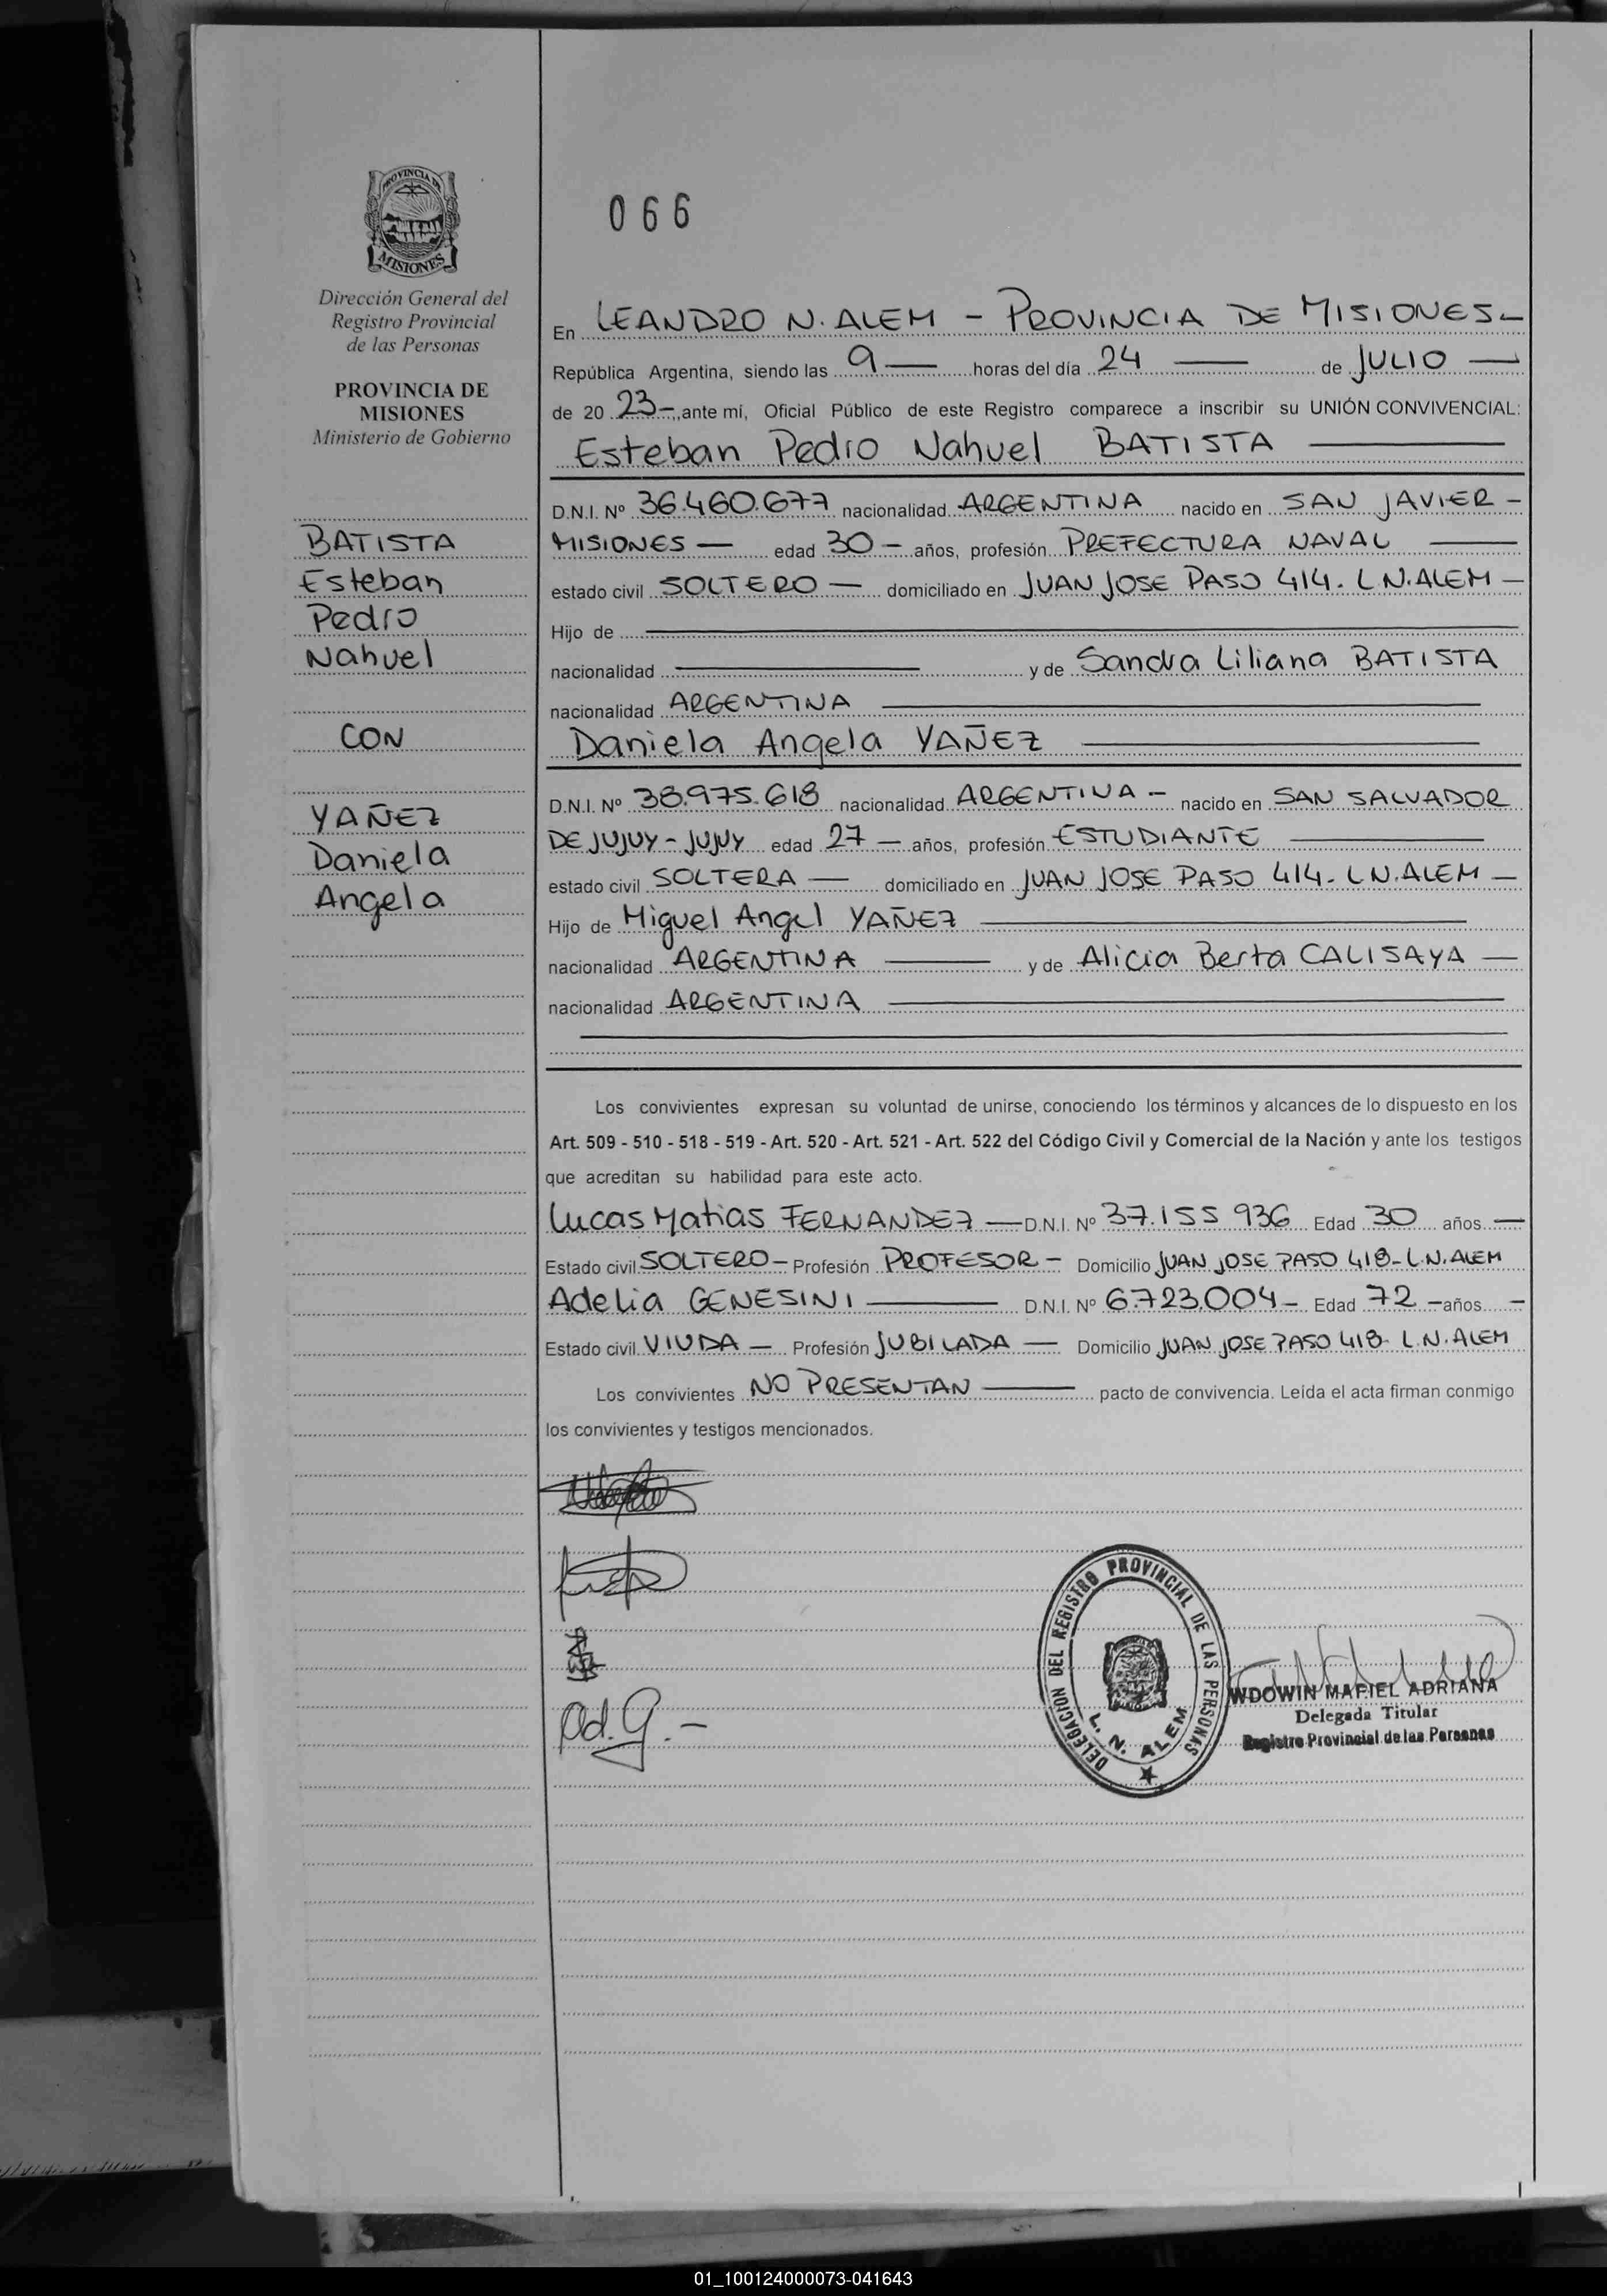 PROVINCIA DE
MISIONES
Dirección General del
Registro Provincial
de las Personas
PROVINCIA DE
MISIONES
Ministerio de Gobierno
BATISTA
Esteban
Pedro
Nahuel
CON
YAÑEZ
Daniela
Angela
066
En LEANDRO N. ALEM - PROVINCIA DE MISIONES-
República Argentina, siendo las 9 — horas del día 24 — de JULIO —
de 20 23-, ante mí, Oficial Público de este Registro comparece a inscribir su UNIÓN CONVIVENCIAL:
Esteban Pedro Nahuel BATISTA —
D.N.I. Nº 36.460.677 nacionalidad ARGENTINA nacido en SAN JAVIER -
MISIONES — edad 30 - años, profesión PREFECTURA NAVAL —
estado civil SOLTERO — domiciliado en JUAN JOSE PASO 414. L.N.ALEM —
Hijo de —
nacionalidad — y de Sandra Liliana BATISTA
nacionalidad ARGENTINA —
Daniela Angela YAÑEZ —
D.N.I. Nº 38.975.618 nacionalidad ARGENTINA - nacido en SAN SALVADOR
DE JUJUY - JUJUY edad 27 — años, profesión ESTUDIANTE —
estado civil SOLTERA — domiciliado en JUAN JOSE PASO 414- L.N.ALEM —
Hijo de Miguel Angel YAÑEZ —
nacionalidad ARGENTINA — y de Alicia Berta CALISAYA —
nacionalidad ARGENTINA —
Los convivientes expresan su voluntad de unirse, conociendo los términos y alcances de lo dispuesto en los
Art. 509 - 510 - 518 - 519 - Art. 520 - Art. 521 - Art. 522 del Código Civil y Comercial de la Nación y ante los testigos
que acreditan su habilidad para este acto.
Lucas Matias FERNANDEZ — D.N.I. Nº 37.155.936 Edad 30 años —
Estado civil SOLTERO - Profesión PROFESOR - Domicilio JUAN JOSE PASO 418- L.N. ALEM
Adelia GENESINI — D.N.I. Nº 6.723.004 - Edad 72 - años -
Estado civil VIUDA — Profesión JUBILADA — Domicilio JUAN JOSE PASO 418- L.N. ALEM
Los convivientes NO PRESENTAN — pacto de convivencia. Leída el acta firman conmigo
los convivientes y testigos mencionados.
Ad. G. -
DELEGACION DEL REGISTRO PROVINCIAL DE LAS PERSONAS
L. N. ALEM
WDOWIN MARIEL ADRIANA
Delegada Titular
Registro Provincial de las Personas
01_100124000073-041643